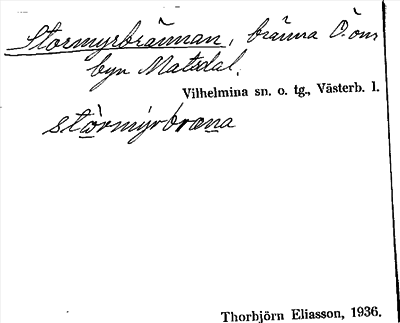 Stormyrbrännan, bränna O. om
byn Matsdal.
Vilhelmina sn. o. tg., Västerb. l.
stòrmýrbrœna
Thorbjörn Eliasson, 1936.